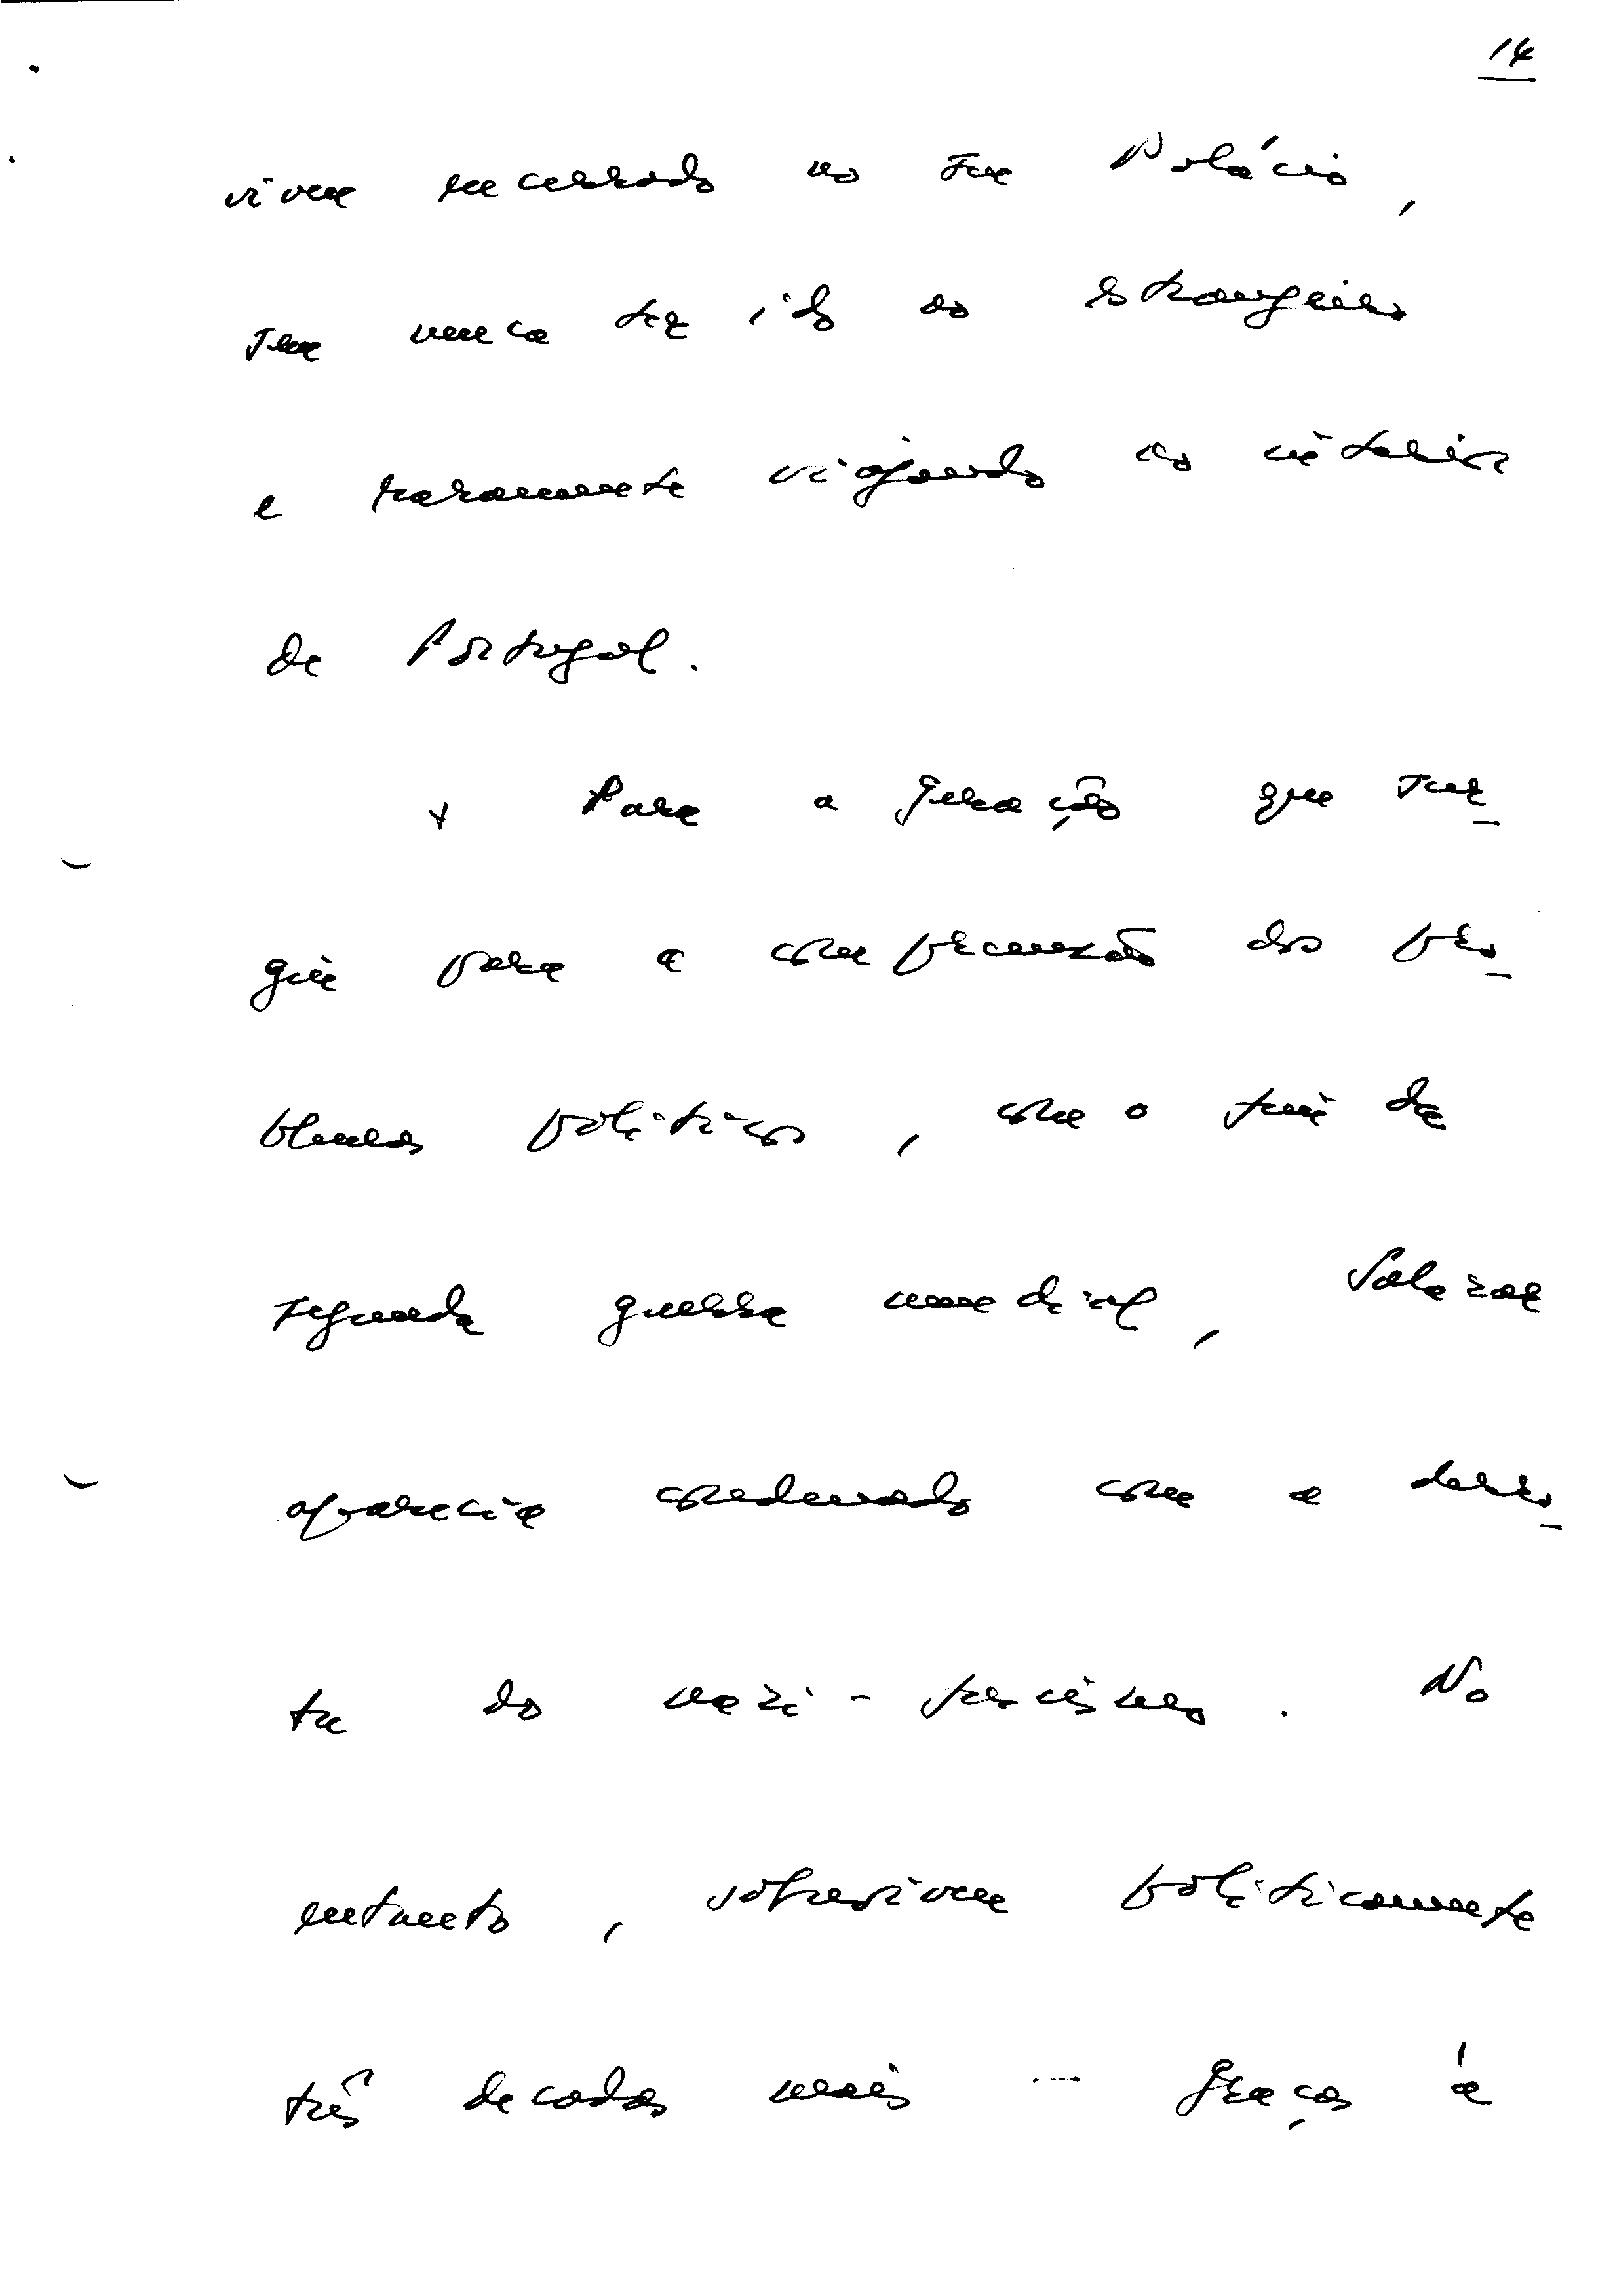 14
viveu encerrado no seu Palácio,
sem nunca ter ido ao estrangeiro
e raramente viajando no interior
de Portugal.
x Para a geração que sur-
giu para a compreensão dos pro-
blemas políticos, com o fim da
segunda guerra mundial, Salazar
aparecia condenado com a derro-
ta do nazi-fascismo. No
entanto, sobreviveu politicamente
três decadas mais - graças à